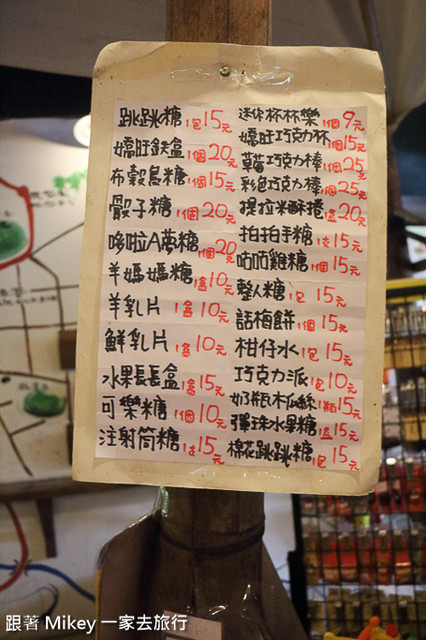 跳跳糖 1包15元
嬌旺鉄盒 1個20元
布穀鳥糖 1個15元
骰子糖 1個20元
哆啦A夢糖 1個20
羊媽媽糖 1盒10元
羊乳片 1盒10元
鮮乳片 1盒10元
水果長長盒 1盒15元
可樂糖 1個10元
注射筒糖 1支15元
迷你杯杯樂 1個9元
嬌旺巧克力杯 1個15元
草莓巧克力棒 1個25元
彩色巧克力棒 1個25元
提拉米酥捲 1盒20元
拍拍手糖 1支15元
咕咕雞糖 1個15元
整人糖 1包 15元
話梅餅 1個 15元
柑仔水 1包 15元
巧克力派 1包10元
奶瓶木瓜絲 1瓶15元
彈珠水果糖 1盒15元
棉花跳跳糖 1包 15元
跟著 Mikey 一家去旅行